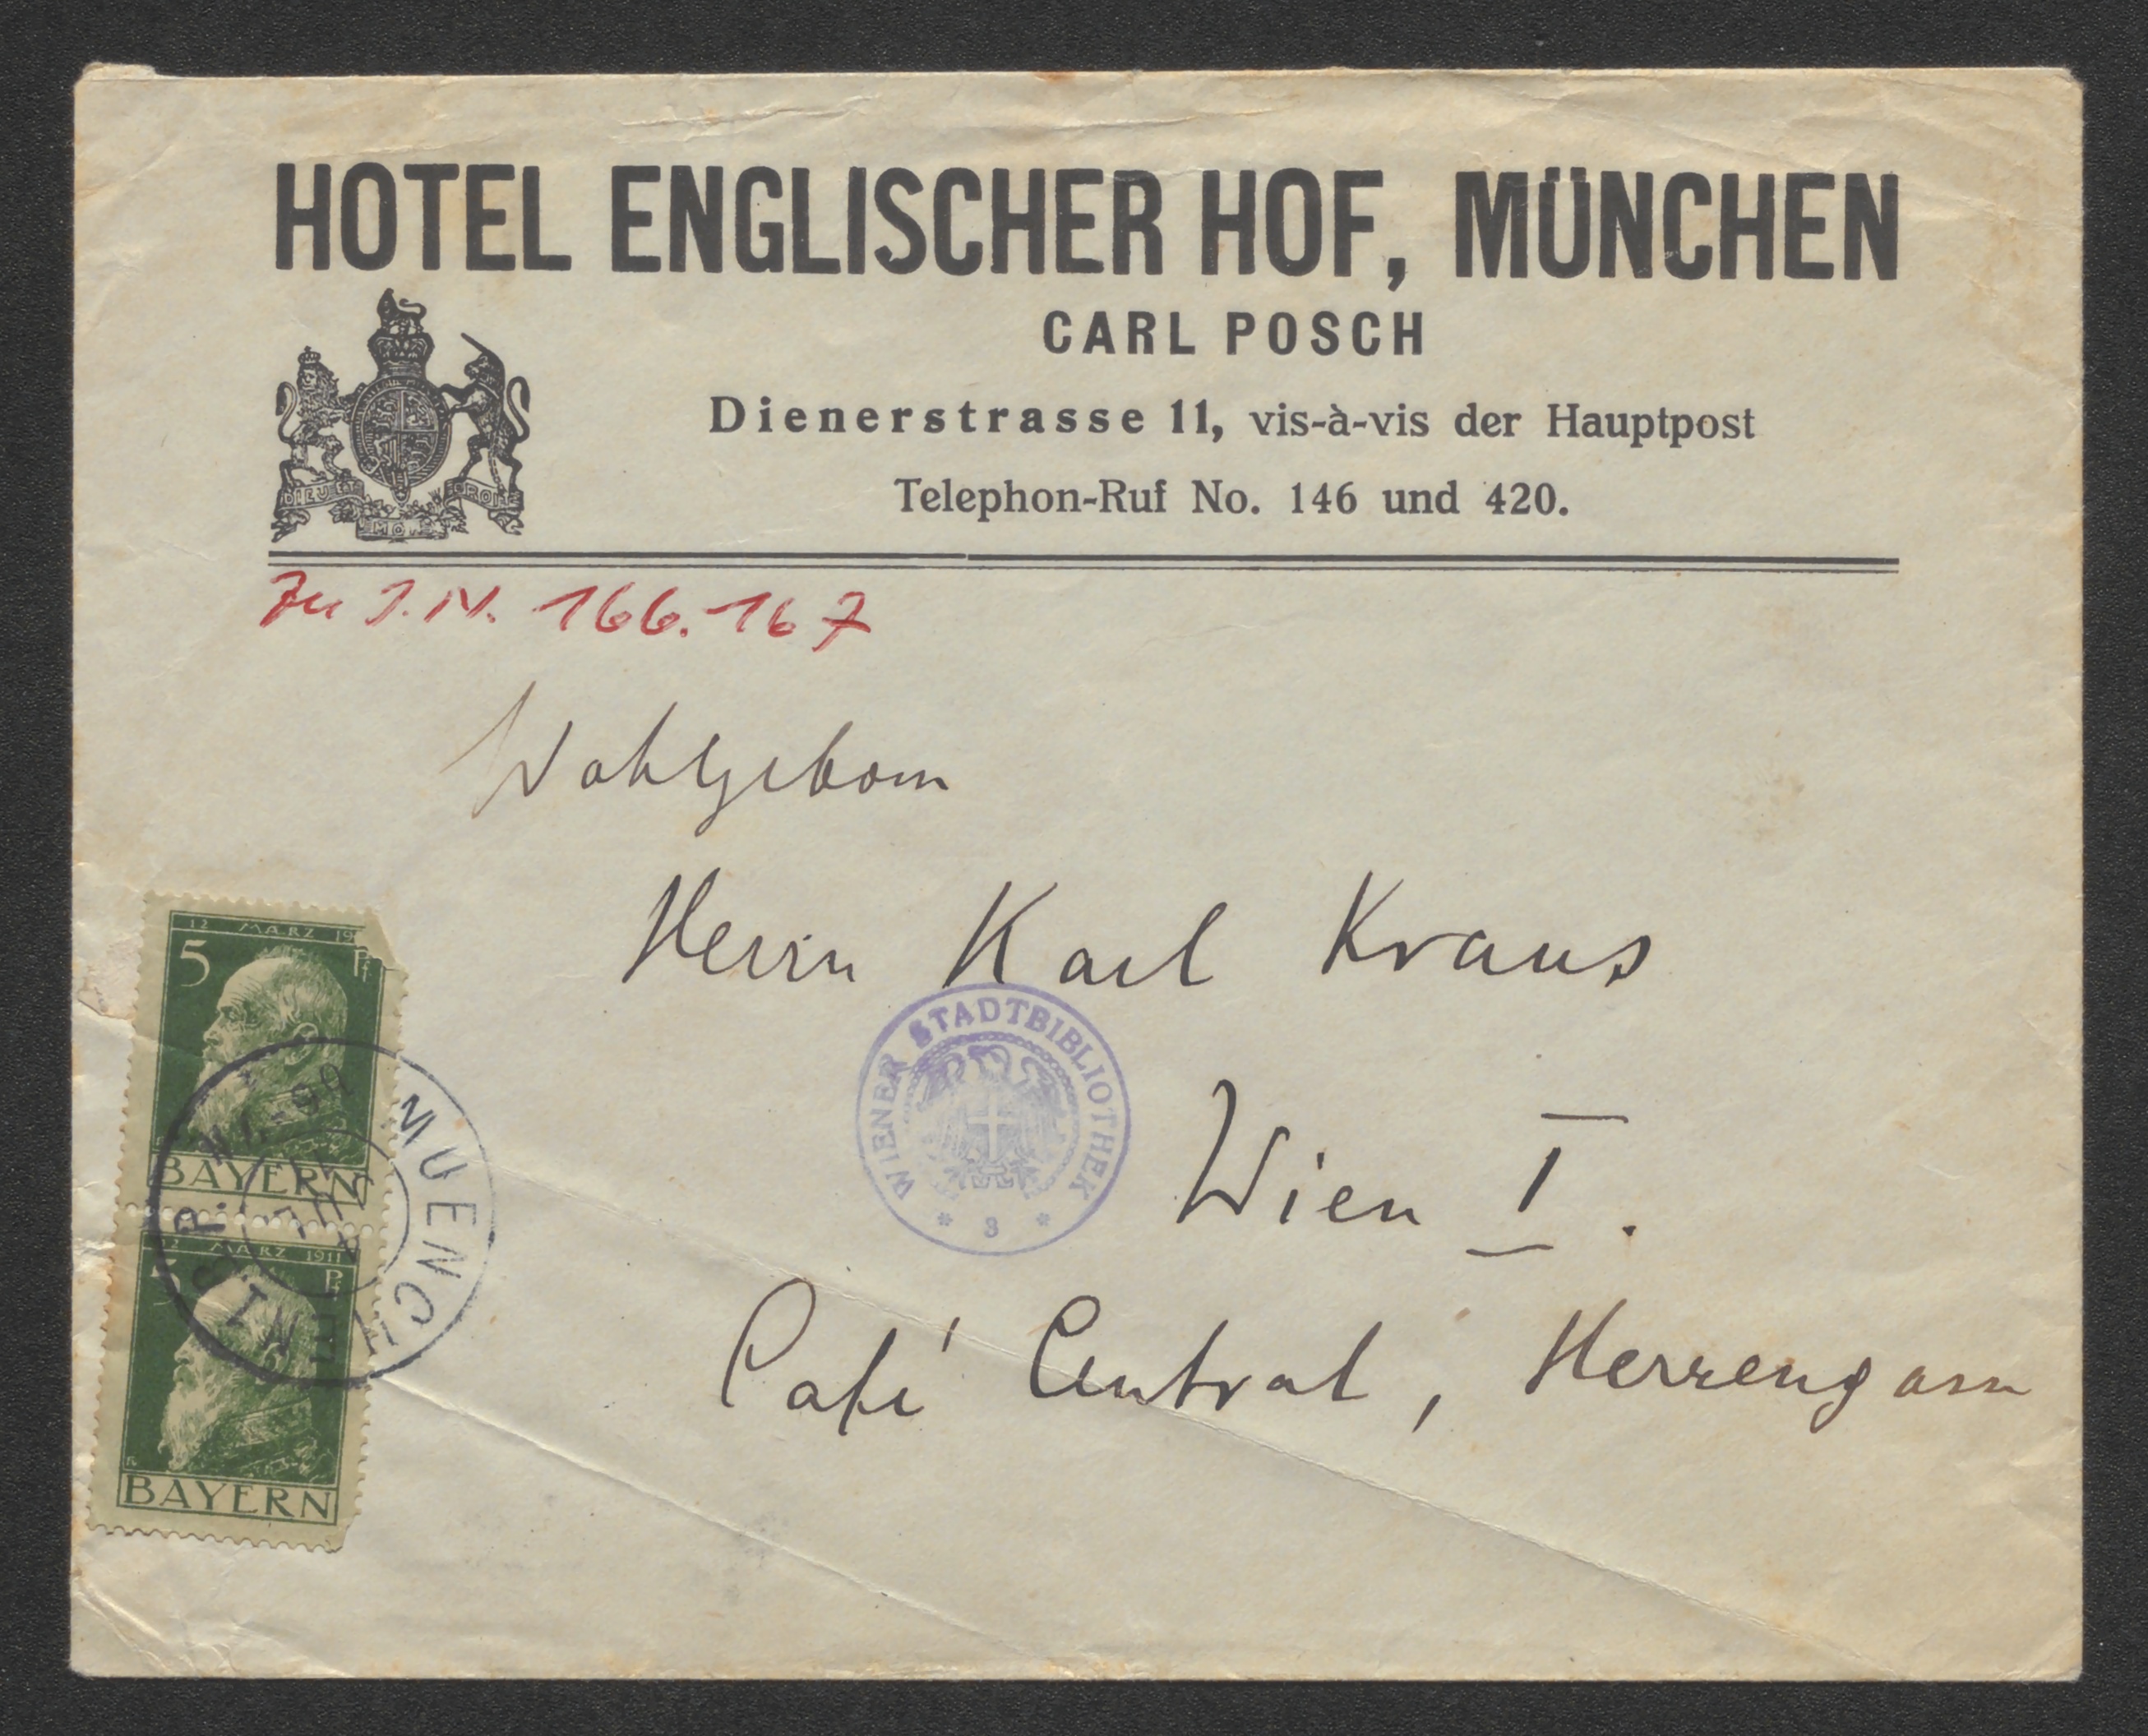 HOTEL ENGLISCHER HOF, MÜNCHEN
CARL POSCH
Dienerstrasse 11, vis-à-vis der Hauptpost
Telephon-Ruf No. 146 und 420.
DIEU ET MON DROIT
Zu I.N. 166.167
Wohlgeborn
Herrn Karl Kraus
WIENER STADTBIBLIOTHEK
* 3 *
Wien I.
Café Central, Herrengasse
12 MÄRZ 19
5 Pf
BAYERN
12 MÄRZ 1911
5 Pf
BAYERN
MUENCHEN